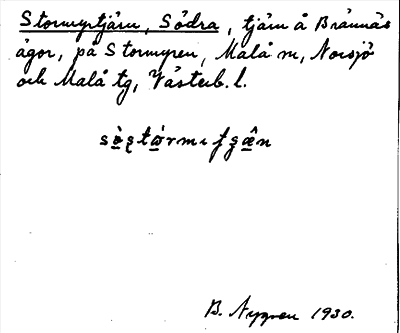 Stormyrtjärn, Södra, tjärn å Brännäs
ägor, på Stormyren, Malå sn, Norsjö
och Malå tg, Västerb. l.
B. Nygren 1930.